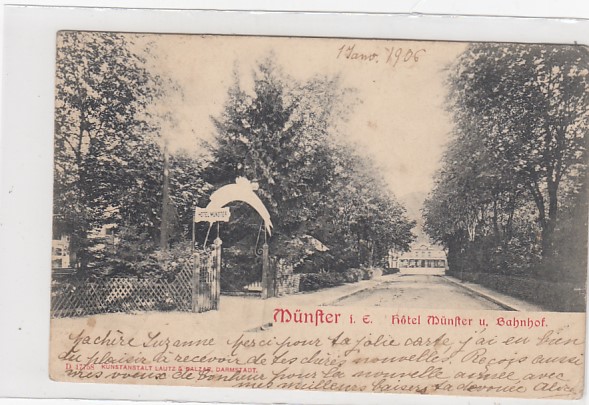 1 Janv. 1906
HOTEL MÜNSTER
Münster i. E. Hôtel Münster u. Bahnhof.
Ma chère Suzanne Merci pour ta jolie carte j'ai eu bien
du plaisir à recevoir de tes chères nouvelles. Reçois aussi
mes voeux de bonheur pour la nouvelle année avec
D 17158 KUNSTANSTALT LAUTZ & BALZAR, DARMSTADT.
mes meilleurs baisers, ta